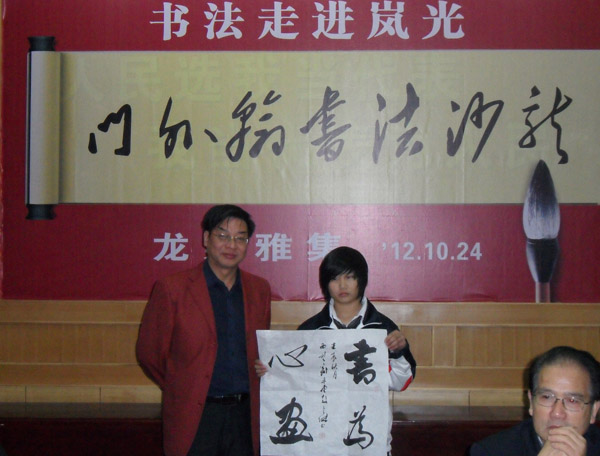 书法走进岚光
門外翰書法沙龍
龙 雅集 '12.10.24
書為
心畫